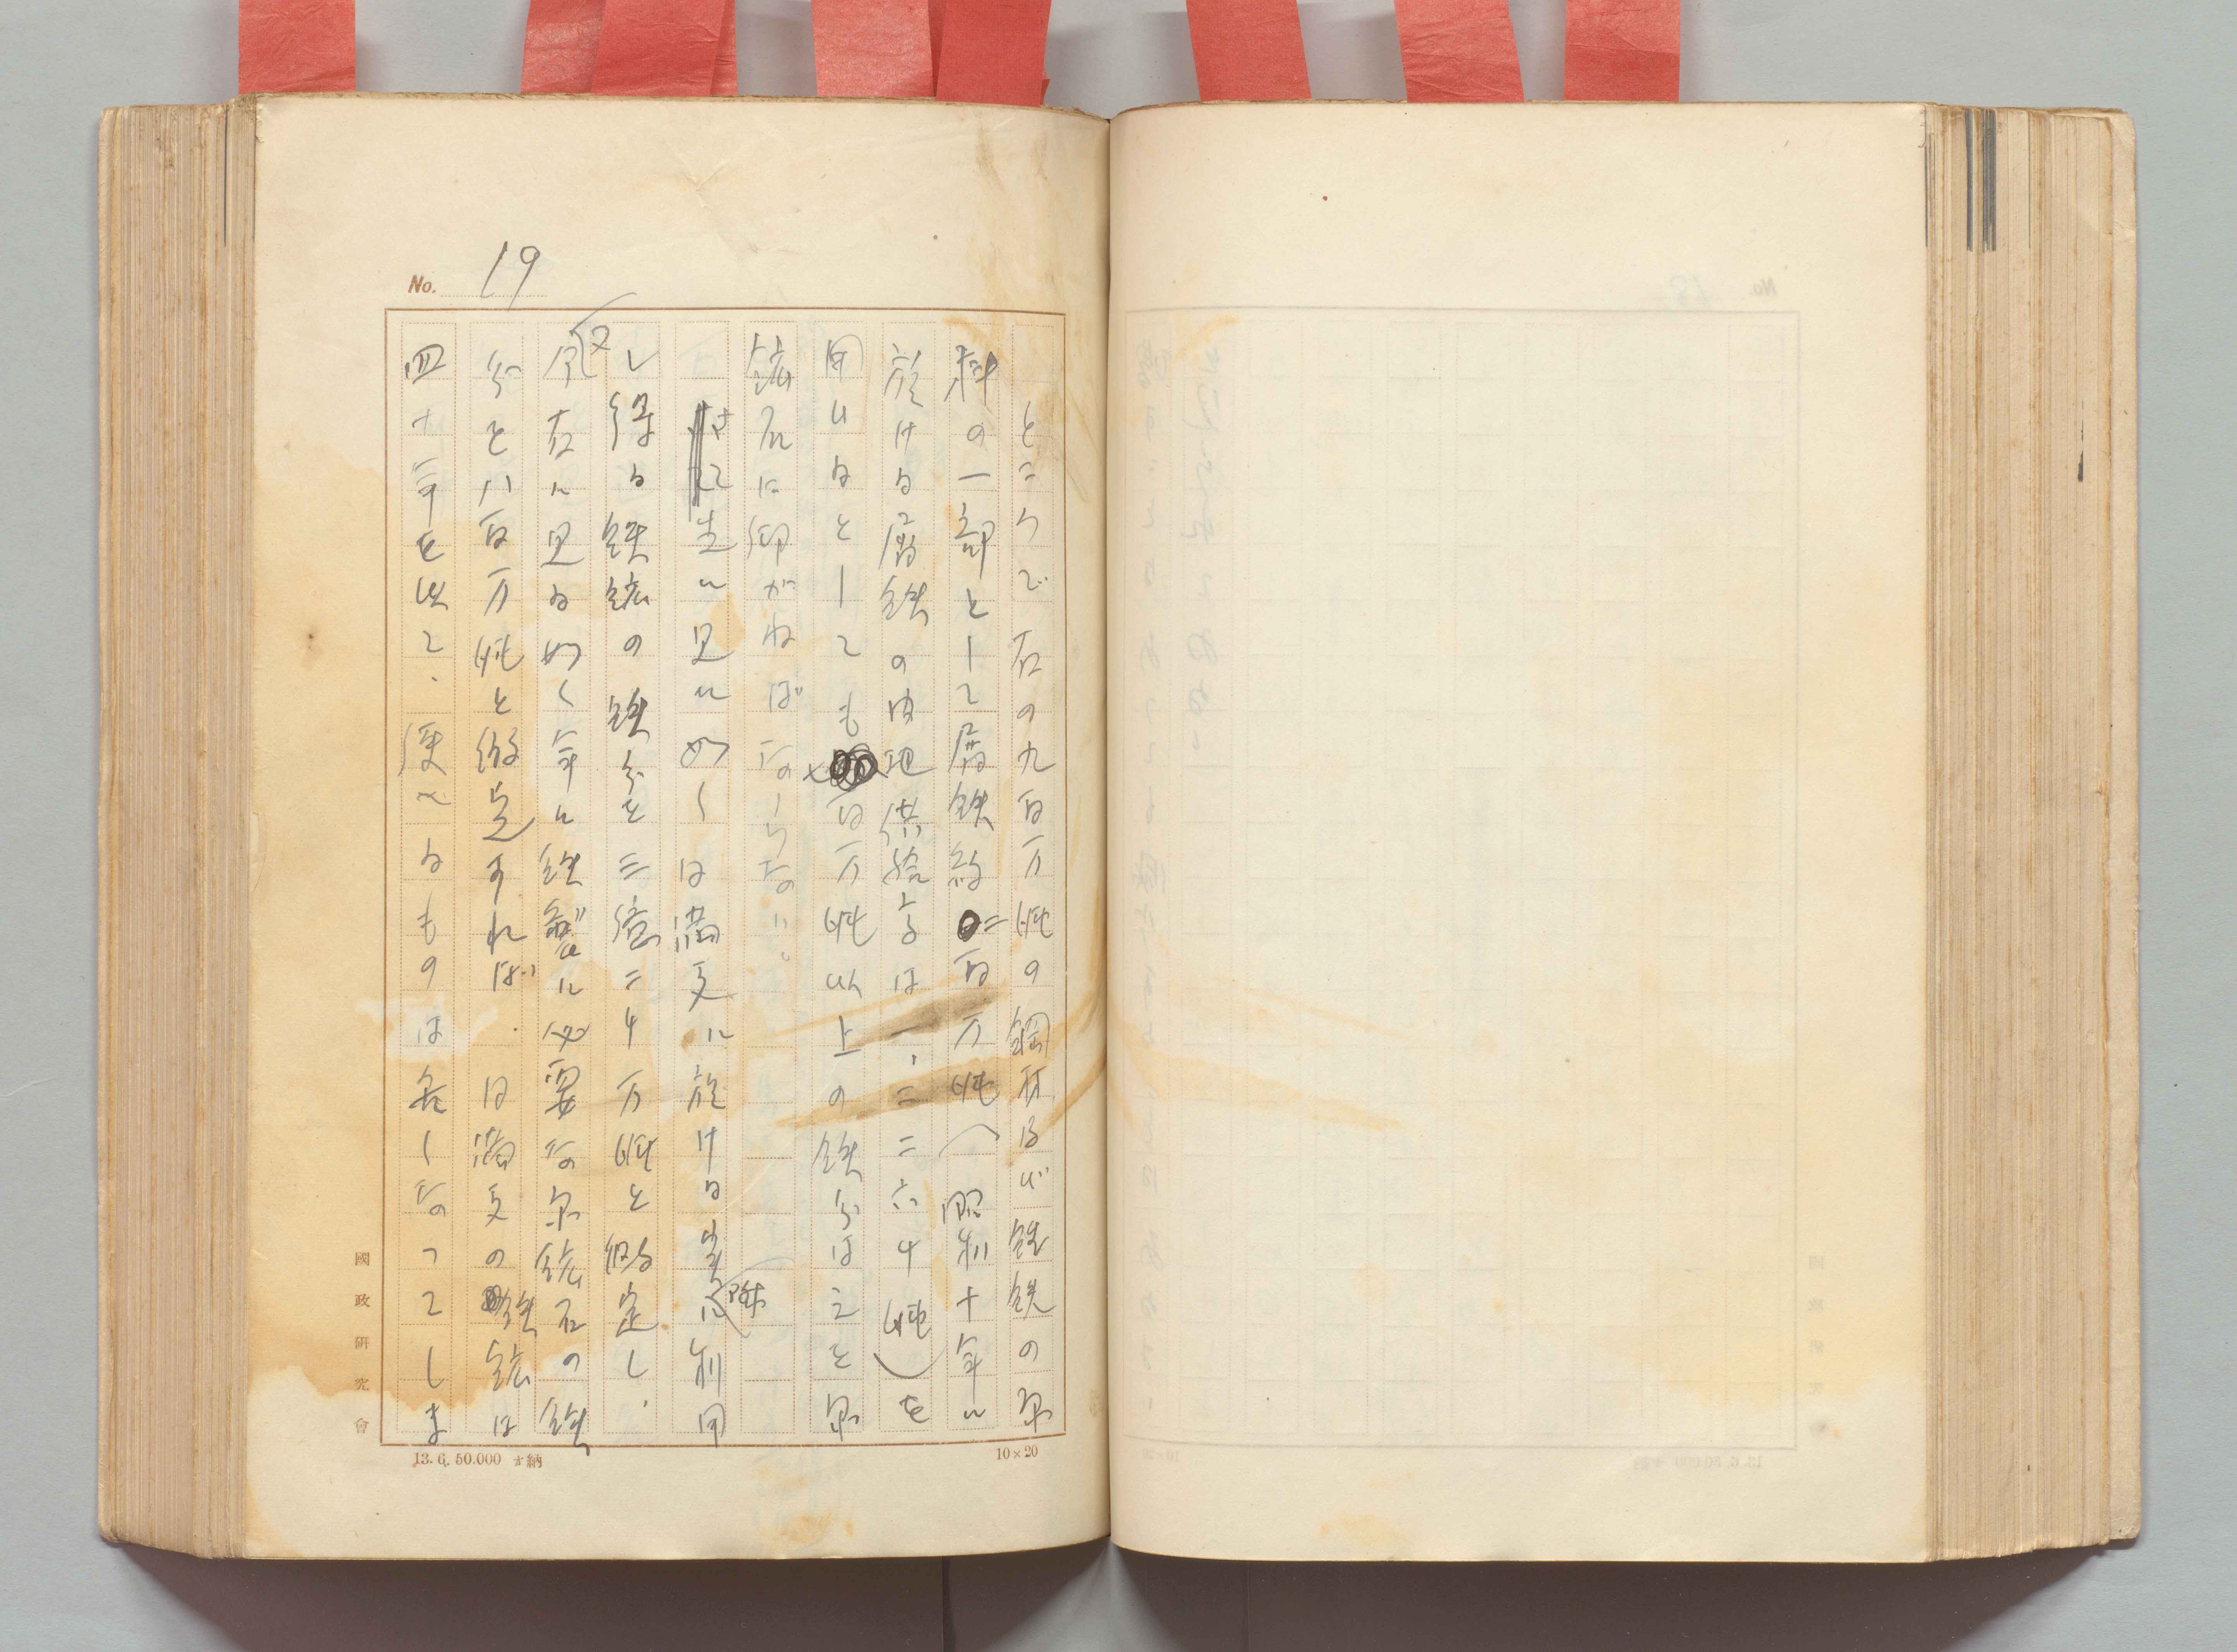 No. 19
ところで右の九百万瓲の鋼材及び銑鉄の原
料の一部として屑鉄約二百万瓲（昭和十年に
於ける屑鉄の内地供給高は一、二二六千瓲）を
用ひるとしても百万瓲以上の鉄分は之を原
鉱石に仰がねばならない。
先に見た如く日満支に於ける実際に利用
し得る鉄鉱の鉄分を三億二千万瓲と假定し、
又今右に見る如く年に鉄製に必要な原鉱石の鉄
分を八百万瓲と假定すれば、日満支の鉄鉱は
四十年を出で、使へるものは無くなってしま
國政研究會
13. 6. 50.000 納
10×20